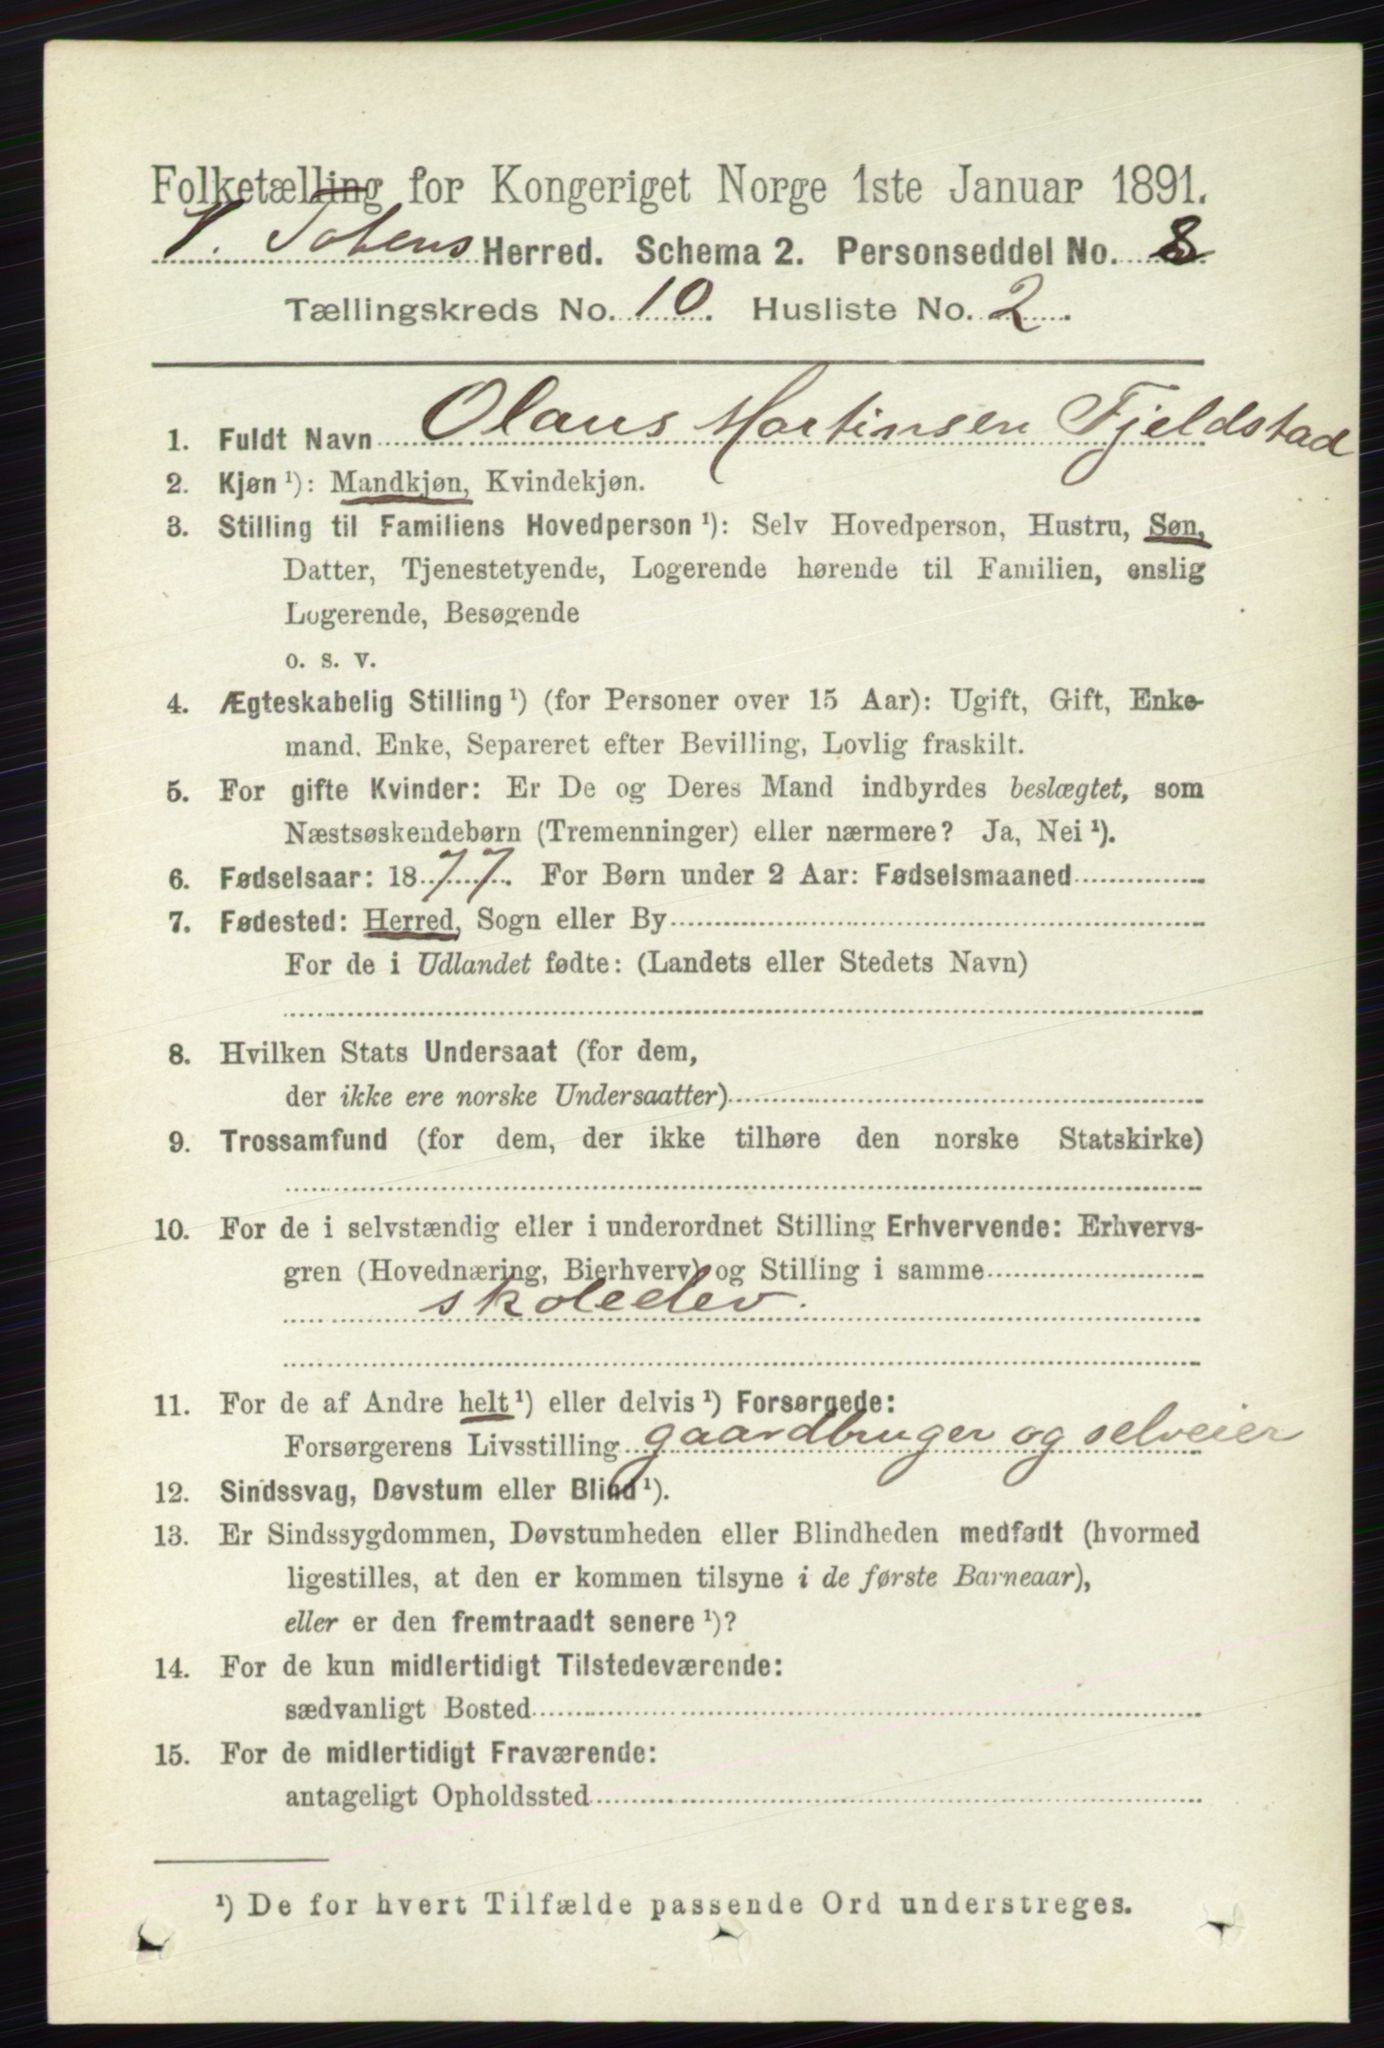 Folketælling for Kongeriget Norge 1ste Januar 1891.
V. Totens Herred. Schema 2. Personseddel No. 8
Tællingskreds No. 10. Husliste No. 2.
1. Fuldt Navn Olaus Martinsen Fjeldstad
2. Kjøn ¹): Mandkjøn, Kvindekjøn.
3. Stilling til Familiens Hovedperson ¹): Selv Hovedperson, Hustru, Søn,
Datter, Tjenestetyende, Logerende hørende til Familien, enslig
Logerende, Besøgende
o. s. v.
4. Ægteskabelig Stilling ¹) (for Personer over 15 Aar): Ugift, Gift, Enke-
mand, Enke, Separeret efter Bevilling, Lovlig fraskilt.
5. For gifte Kvinder: Er De og Deres Mand indbyrdes beslægtet, som
Næstsøskendebørn (Tremenninger) eller nærmere? Ja, Nei ¹).
6. Fødselsaar: 1877. For Børn under 2 Aar: Fødselsmaaned
7. Fødested: Herred, Sogn eller By
For de i Udlandet fødte: (Landets eller Stedets Navn)
8. Hvilken Stats Undersaat (for dem,
der ikke ere norske Undersaatter)
9. Trossamfund (for dem, der ikke tilhøre den norske Statskirke)
10. For de i selvstændig eller i underordnet Stilling Erhvervende: Erhvervs-
gren (Hovednæring, Bierhverv) og Stilling i samme
skoleelev.
11. For de af Andre helt ¹) eller delvis ¹) Forsørgede:
Forsørgerens Livsstilling gaardbruger og selveier
12. Sindssvag, Døvstum eller Blind ¹).
13. Er Sindssygdommen, Døvstumheden eller Blindheden medfødt (hvormed
ligestilles, at den er kommen tilsyne i de første Barneaar),
eller er den fremtraadt senere ¹)?
14. For de kun midlertidigt Tilstedeværende:
sædvanligt Bosted
15. For de midlertidigt Fraværende:
antageligt Opholdssted
¹) De for hvert Tilfælde passende Ord understreges.